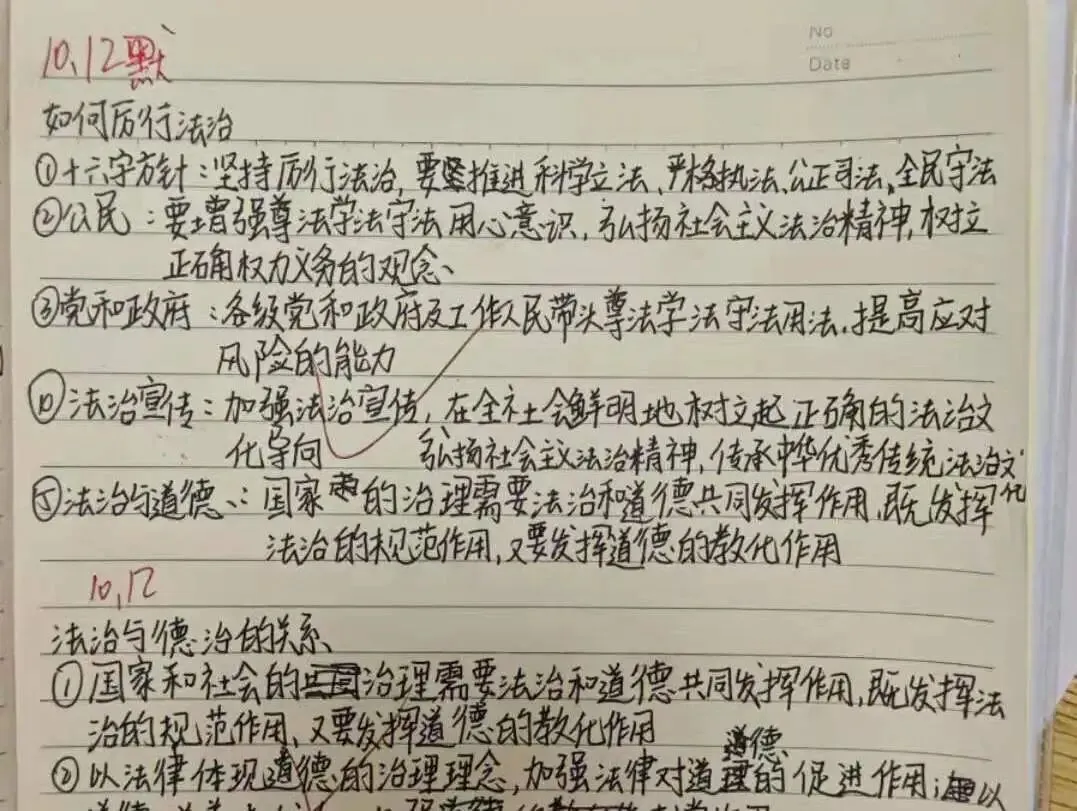 No
Date
10,12默
如何厉行法治
①十六字方针：坚持厉行法治,要推进科学立法、严格执法、公正司法、全民守法
②公民：要增强尊法学法守法用心意识,弘扬社会主义法治精神,树立
正确权力义务的观念、
③党和政府：各级党和政府及工作人民带头尊法学法守法用法.提高应对
风险的能力
④法治宣传：加强法治宣传,在全社会鲜明地树立起正确的法治文
化导向 弘扬社会主义法治精神,传承中华优秀传统法治文化
⑤法治与道德：国家的治理需要法治和道德共同发挥作用,既发挥
法治的规范作用,又要发挥道德的教化作用
10,12
法治与德治的关系
①国家和社会的治理需要法治和道德共同发挥作用,既发挥法
治的规范作用,又要发挥道德的教化作用
道德
②以法律体现道德的治理理念,加强法律对道的促进作用;以